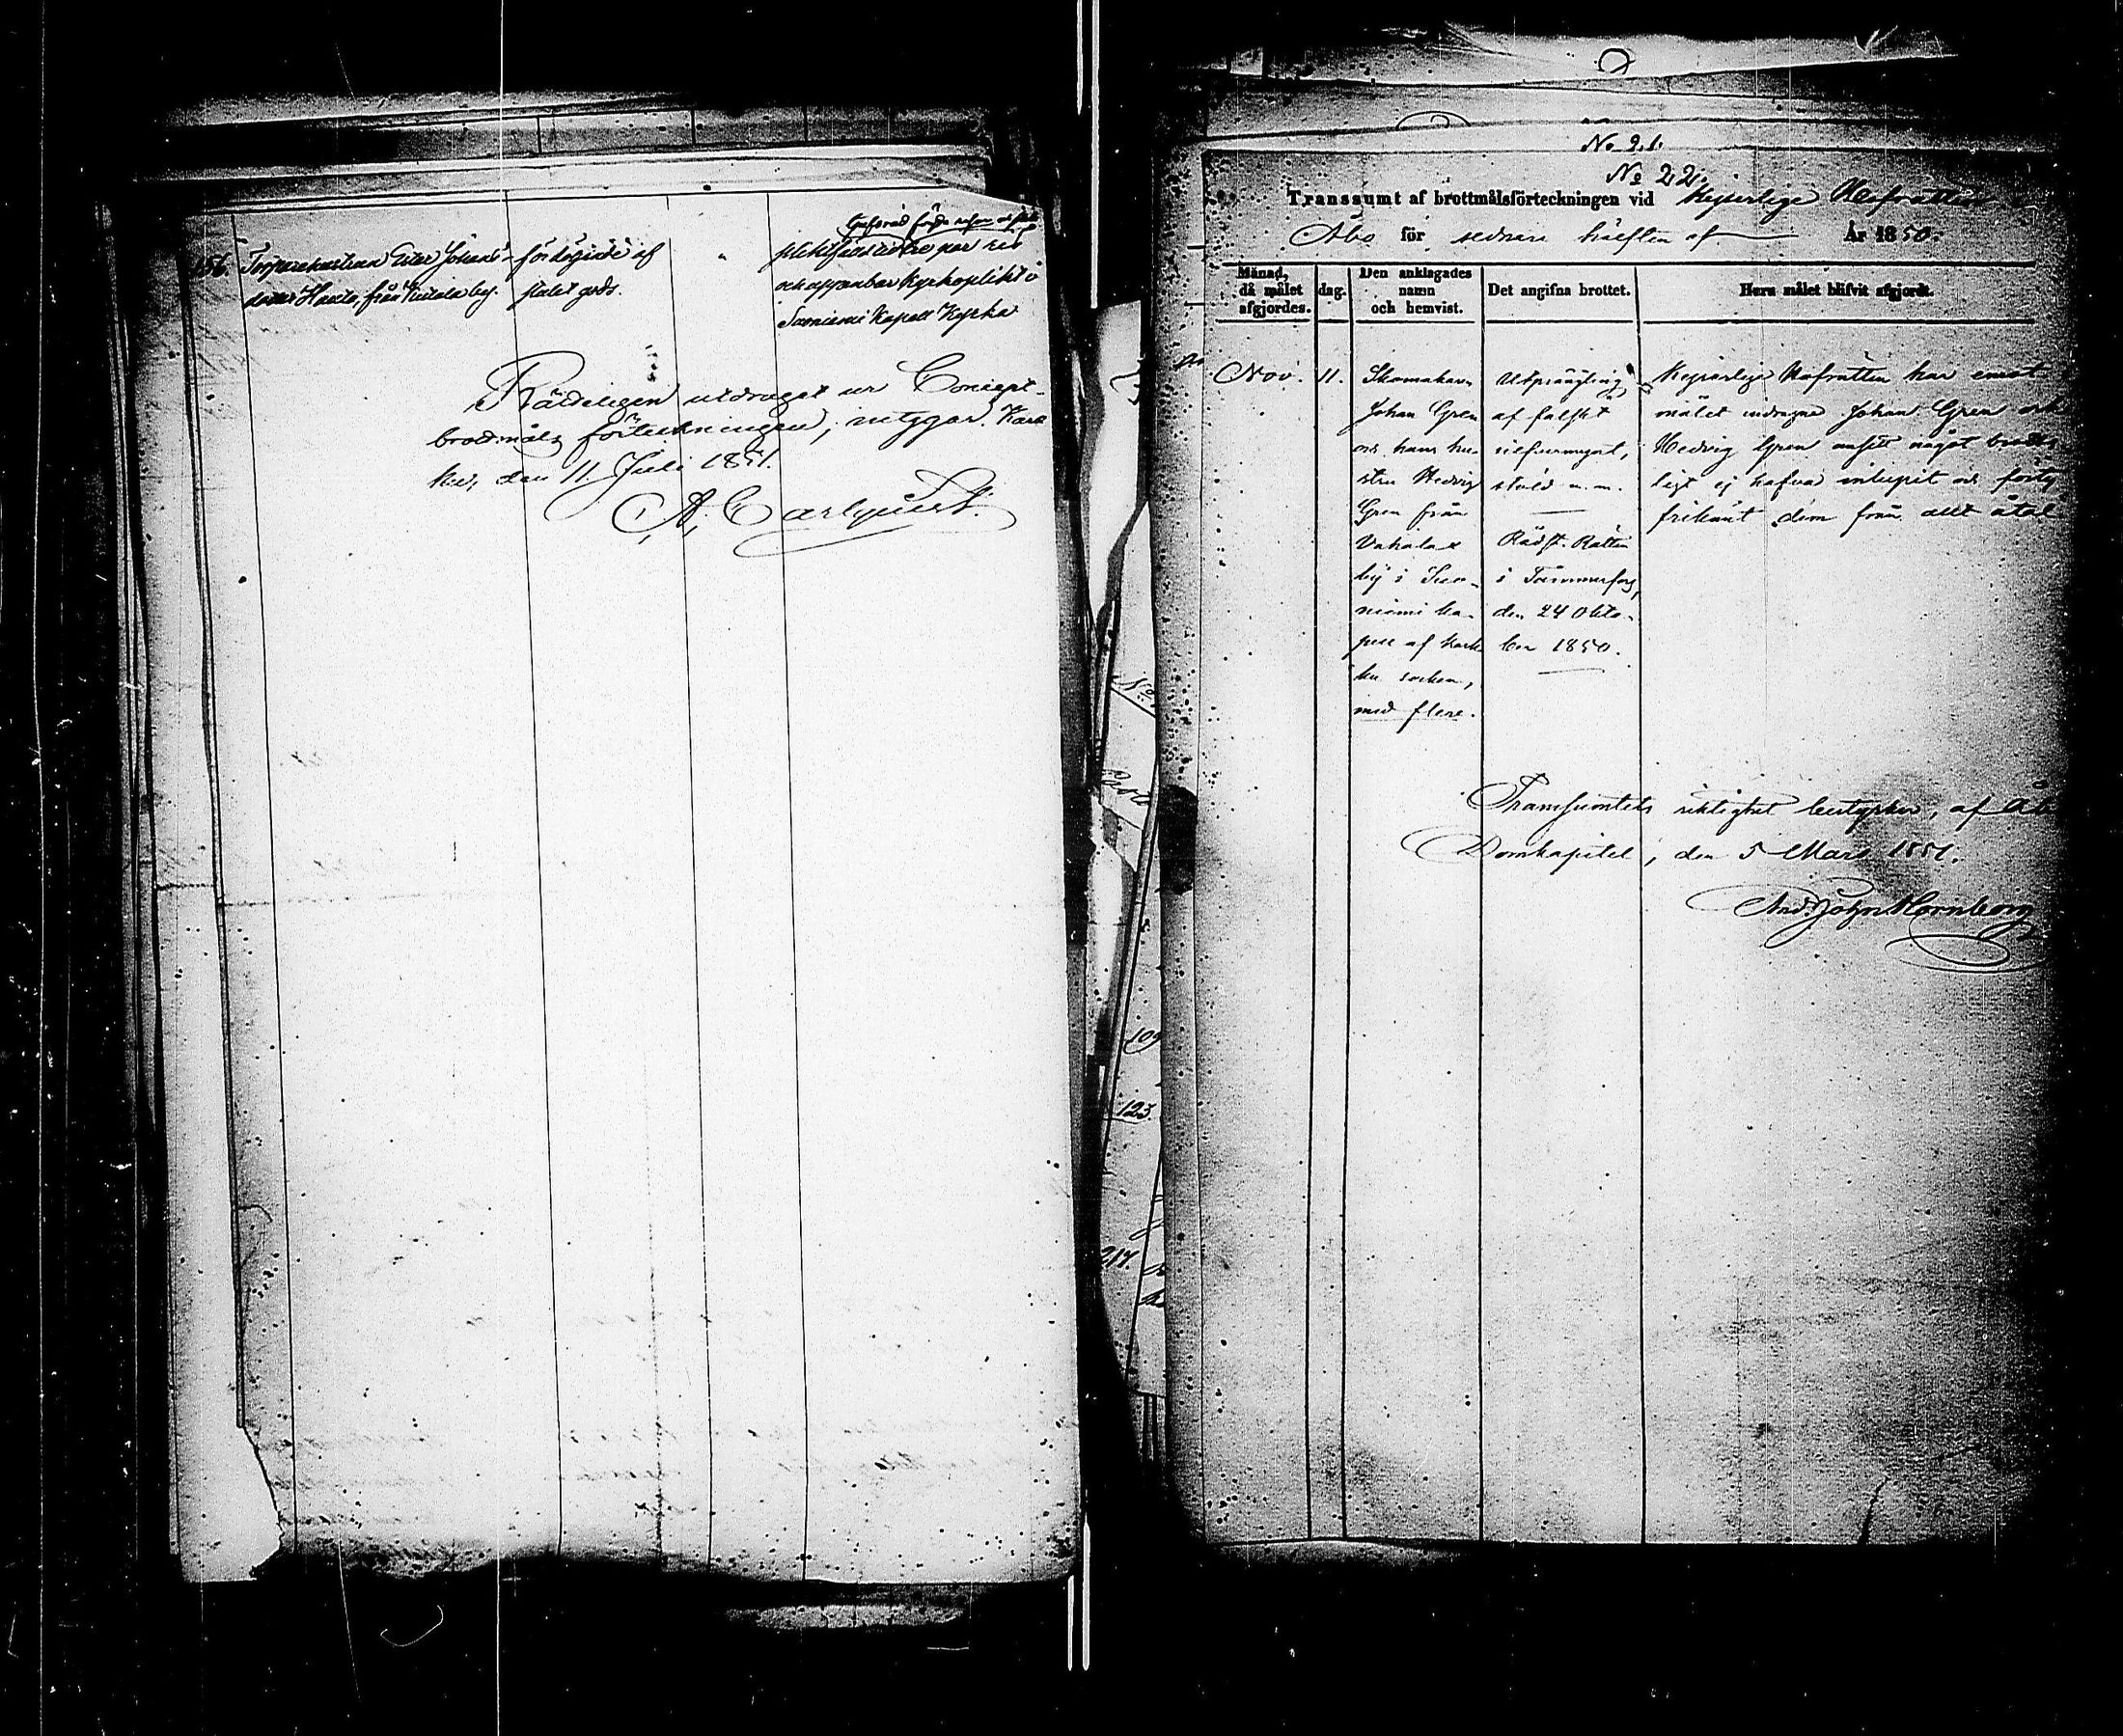 156. Torparehustrun Eva Johans- fördöljande af
dotter från by. stulet gods.
och uppenbar Kyrkoplikt i
Suoniemi Kapell Kyrka
Rätteligen utdraget ur Concept-
brottmåls förteckningen, intygar. Kark-
ku, den 11 Juli 1851.
A. Carlquist.
No 21.
No 22.
Transsumt af brottmålsförteckningen vid Kejserliga Hofrätten
Åbo för sednare hälften af År 1850.
Månad, då målet afgjordes.
dag.
Den anklagades namn och hemvist.
Det angifna brottet.
Huru målet blifvit afgjordt.
Nov. 11.
Skomakaren
Johan Gren
och hans hu-
stru Hedvig
Gren från
by i Suo-
niemi ka-
pell af Kark-
ku socken,
med flere.
Utprångling
af falskt
silfvermynt,
stöld m. m.
Rådst. Rätten
i Tammerfors,
den 24 Okto-
ber 1850.
Kejserliga Hofrätten har emot
målet indragne Johan Gren och
Hedvig Gren ansett något brotts-
ligt ej hafva inlupit och förty
frikänt dem från allt åtal
Transsumtets riktighet bestyrker, af Åbo
Domkapitel, den 5 Mars 1851.
And. John Hornborg
No
109
123.
217.